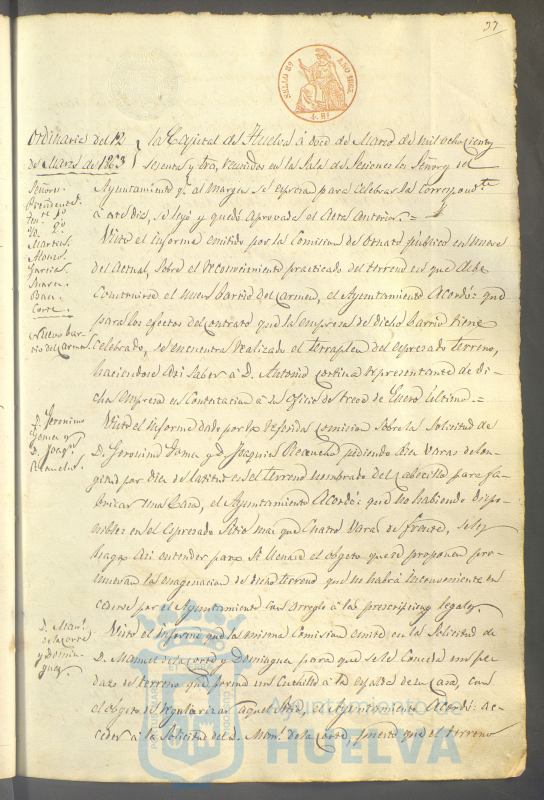 37
SELLO 8º AÑO 1863
Ordinaria del 12
de Marzo de 1863
En la Capital de Huelva á doce de Marzo de mil ochocientos
sesenta y tres, reunidos en la Sala de Sesiones los Señores del
Ayuntamiento q. al margen se espresa para celebrar la correspondte
á este dia, se leyó y quedó aprovada el Acta anterior.=
Señores
Presidente
Ten.te 1º
Yd. 2º
Martin
Alonso
Garcia
Corte
Nuevo bar-
rio del Carmen
Visto el informe emitido por la Comision de Ornato público en nueve
del actual, sobre el reconocimiento practicado del terreno en que debe
construirse el nuevo barrio del Carmen, el Ayuntamiento Acordó: que
para los efectos del contrato que la empresa de dicho barrio tiene
celebrado, se encuentra realizado el terraplen del espresado terreno,
haciendose asi saber á D. Antonio Cortina representante de di-
cha Empresa en contestacion á su oficio de trece de Enero último.=
D. Jeronimo
Gomez y
D. Joaqn
Visto el informe dado por la referida comision sobre la solicitud de
D. Geronimo Gomez y D. Joaquin pidiendo diez varas de lon-
gitud por diez de latitud en el terreno nombrado del Cabecillo para fa-
bricar una Casa, el Ayuntamiento Acordó: que no habiendo dispo-
nibles en el espresado sitio mas que cuatro varas de frente, se les
haga asi entender para si llenase el objeto que se proponen pro-
muevan la enagenacion de dicho terreno que no habrá inconveniente en
cederse por el Ayuntamiento con arreglo á las prescripciones legales.
D. Manl
de la Corte
y Domin-
guez
Visto el informe que la misma Comision emite en la solicitud de
D. Manuel de la Corte y Dominguez para que se le conceda un pe-
dazo de terreno que forma un cuchillo á la espalda de su Casa, con
el objeto de regularizar aquel sitio, el Ayuntamiento Acordó: ac-
ceder á la solicitud del D. Manl de la Corte, puesto que el terreno
Ayuntamiento de
HUELVA